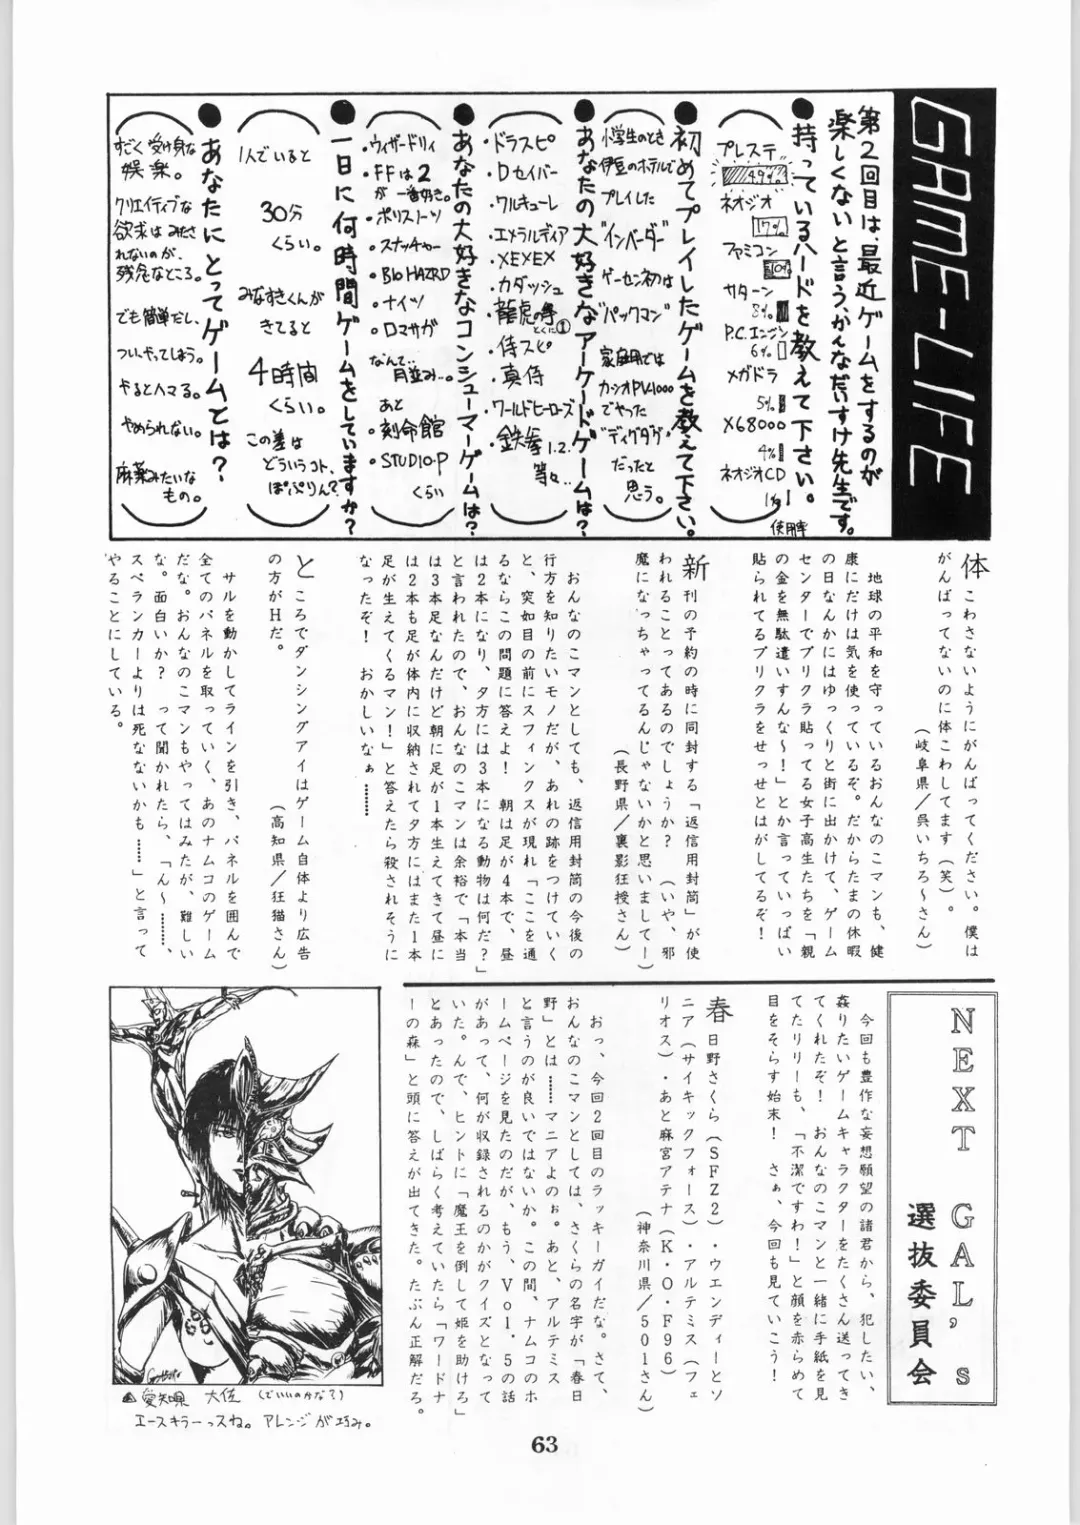 GAME-LIFE
第2回目は、最近ゲームをするのが
楽しくないと言う、かんなだいすけ先生です。
●持っているハードを教えて下さい。
プレステ
49%
ネオジオ
17%
ファミコン
10%
サターン
8%
P.C.エンジン
6%
メガドラ
5%
X68000
4%
ネオジオCD
1%
使用率
●初めてプレイしたゲームを教えて下さい。
小学生のとき
伊豆のホテルで
プレイした
"インベーダー"
ゲーセンネタは
"パックマン"
家庭用では
カシオPV1000
でやった
"ディグダグ"
だったと
思う。
●あなたの大好きなアーケードゲームは?
・ドラスピ
・Dセイバー
・ワルキューレ
・エメラルディア
・XEXEX
・カダッシュ
・龍虎の拳
とくに①
・侍スピ
・真侍
・ワールドヒーローズ
・鉄拳1.2.
等々…
●あなたの大好きなコンシューマーゲームは?
・ウィザードリィ
・FFは2
が一番好き。
・ポリスノーツ
・スナッチャー
・BIO HAZRD
・ナイツ
・ロマサガ
なんて…
月並み…。
あと
・刻命館
・STUDIO・P
くらい
●一日に何時間ゲームをしていますか?
1人でいると
30分
くらい。
みなすきくんが
きてると
4時間
くらい。
この差は
どういうコト、
ぽぷりん?
●あなたにとってゲームとは?
すごく受け身な
娯楽。
クリエイティブな
欲求はみたさ
れないのが、
残念なところ。
でも簡単だし、
ついやってしまう。
やるとハマる。
やめられない。
麻薬みたいな
もの。
体こわさないようにがんばってください。僕は
がんばってないのに体こわしてます(笑)。
(岐阜県/呉いちろ〜さん)
地球の平和を守っているおんなのこマンも、健
康にだけは気を使っているぞ。だからたまの休暇
の日なんかにはゆっくりと街に出かけて、ゲーム
センターでプリクラ貼ってる女子高生たちを「親
の金を無駄遣いすんな〜!」とか言っていっぱい
貼られてるプリクラをせっせとはがしてるぞ!
新刊の予約の時に同封する「返信用封筒」が使
われることってあるのでしょうか? (いや、邪
魔になっちゃってるんじゃないかと思いましてー)
(長野県/裏影狂授さん)
おんなのこマンとしても、返信用封筒の今後の
行方を知りたいモノだが、あれの跡をつけていく
と、突如目の前にスフィンクスが現れ「ここを通
るならこの問題に答えよ! 朝は足が4本で、昼
は2本になり、夕方には3本になる動物は何だ?」
と言われたので、おんなのこマンは余裕で「本当
は3本足なんだけど朝に足が1本生えてきて昼に
は2本も足が体内に収納されて夕方にはまた1本
足が生えてくるマン!」と答えたら殺されそうに
なったぞ! おかしいなぁ………
ところでダンシングアイはゲーム自体より広告
の方がHだ。
(高知県/狂猫さん)
サルを動かしてラインを引き、パネルを囲んで
全てのパネルを取っていく、あのナムコのゲーム
だな。おんなのこマンもやってはみたが、難しい
な。面白いか? って聞かれたら、「ん〜………、
スペランカーよりは死なないかも……」と言って
やることにしている。
NEXT GAL's
選抜委員会
今回も豊作な妄想願望の諸君から、犯したい、
姦りたいゲームキャラクターをたくさん送ってき
てくれたぞ! おんなのこマンと一緒に手紙を見
てたリリーも、「不潔ですわ!」と顔を赤らめて
目をそらす始末! さぁ、今回も見ていこう!
春日野さくら(SFZ2)・ウエンディーとソ
ニア(サイキックフォース)・アルテミス(フェ
リオス)・あと麻宮アテナ(K・O・F96)
(神奈川県/501さん)
おっ、今回2回目のラッキーガイだな。さて、
おんなのこマンとしては、さくらの名字が「春日
野」とは……マニアよのぉ。あと、アルテミス
と言うのが良いではないか。この間、ナムコのホ
ームページを見たのだが、もう、Vol.5の話
があって、何が収録されるのかがクイズとなって
いた。んで、ヒントに「魔王を倒して姫を助けろ」
とあったので、しばらく考えていたら「ワードナ
ーの森」と頭に答えが出てきた。たぶん正解だろ。
▲愛知県 大佐(でいいのかな?)
エースキラーっスね。アレンジが巧み。
63